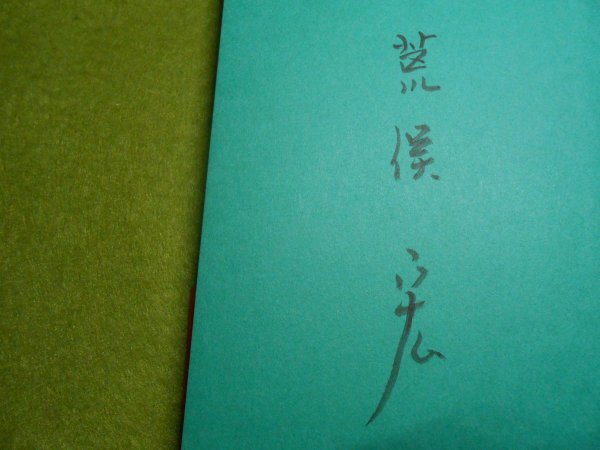 荒俣宏